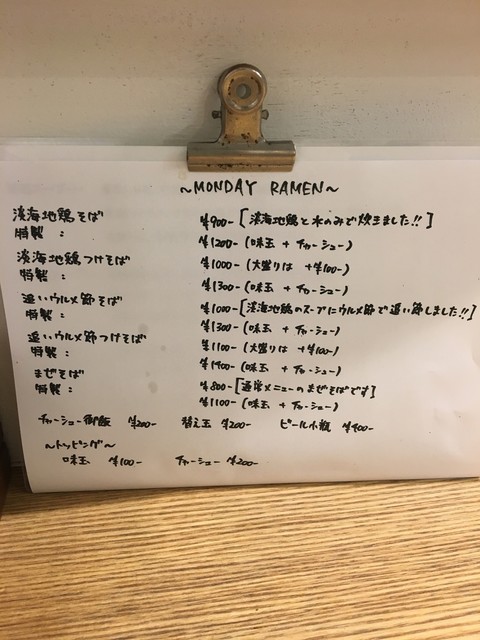 ~MONDAY RAMEN~
淡海地鶏そば ¥900-[淡海地鶏と水のみで炊きました!!]
特製: ¥1200-(味玉+チャーシュー)
淡海地鶏つけそば ¥1000-(大盛りは +¥100-)
特製: ¥1300-(味玉+チャーシュー)
追いウルメ節そば ¥1000-[淡海地鶏のスープにウルメ節で追い節しました!!]
特製: ¥1300-(味玉+チャーシュー)
追いウルメ節つけそば ¥1100-(大盛りは +¥100-)
特製: ¥1400-(味玉+チャーシュー)
まぜそば ¥800-[通常メニューのまぜそばです]
特製: ¥1100-(味玉+チャーシュー)
チャーシュー御飯 ¥200- 替え玉 ¥200- ビール小瓶 ¥400-
~トッピング~
味玉 ¥100- チャーシュー ¥200-